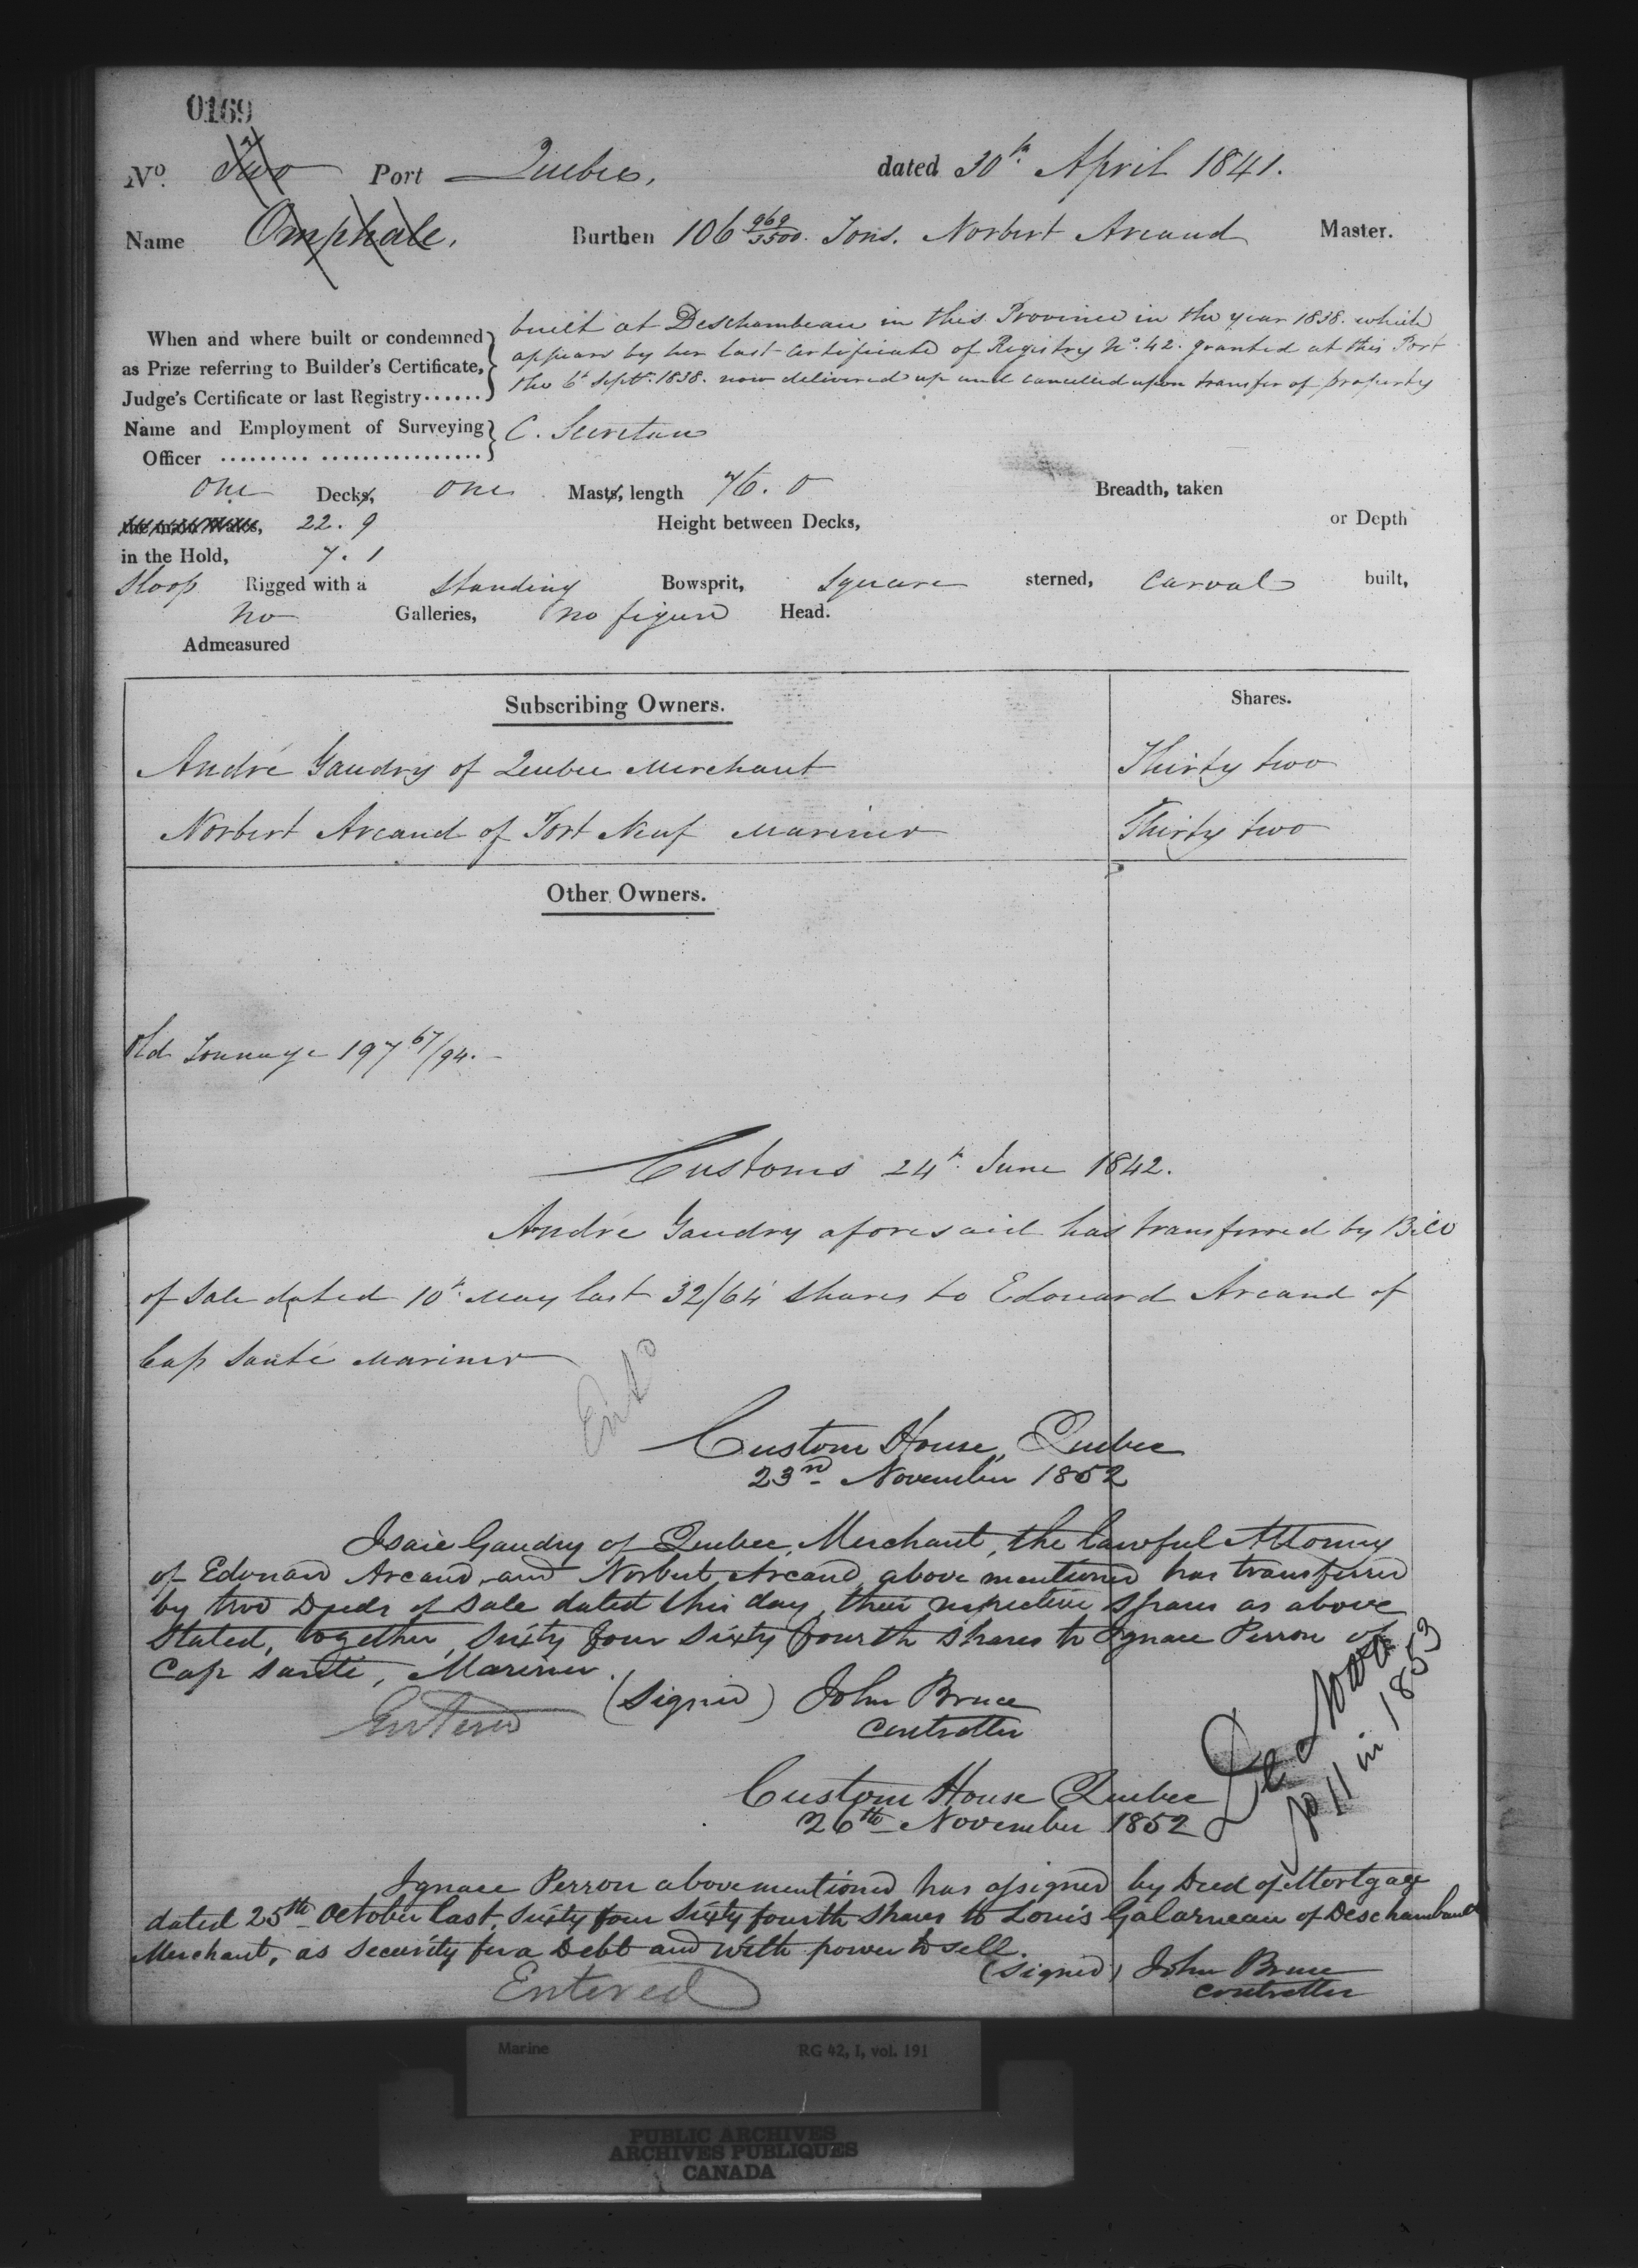 0169
No. Two Port Quebec, dated 30th April 1841.
Name Omphale, Burthen 106 969/3500 Tons. Norbert Arcand Master.
When and where built or condemned built at Deschambeau in this Province in the year 1838. which
as Prize referring to Builder's Certificate, appears by her last Certificate of Registry No. 42. granted at this Port
Judge's Certificate or last Registry...... the 6th Septr. 1838. now delivered up and cancelled upon transfer of property
Name and Employment of Surveying C. Secretan
Officer ......... ................
One Decks, One Masts, length 76. 0 Breadth, taken
the main Wales, 22. 9 Height between Decks, or Depth
in the Hold, 7. 1
Sloop Rigged with a Standing Bowsprit, Square sterned, Carval built,
No Galleries, no figure Head.
Admeasured
Subscribing Owners. Shares.
André Gaudry of Quebec Merchant Thirty two
Norbert Arcand of Port Neuf Mariner Thirty two
Other Owners.
Old Tonnage 197 67/94.
Customs 24th June 1842.
André Gaudry aforesaid has transferred by Bill
of Sale dated 10th May last 32/64 shares to Edouard Arcand of
Cap Santé Mariner
Entd
Custom House, Quebec
23rd November 1852
Isaie Gaudry of Quebec, Merchant, the lawful Attorney
of Edouard Arcand and Norbert Arcand above mentioned has transferred
by two Deeds of Sale dated this day, their respective Shares as above
Stated, together, Sixty four Sixty fourth Shares to Ignace Perron of
Cap Santé, Mariner.
(Signed) John Bruce
Entered Controller
De Novo
No 11 in 1853
Custom House Quebec
26th November 1852
Ignace Perron abovementioned has assigned by Deed of Mortgage
dated 25th October last, Sixty four Sixty fourth Shares to Louis Galarneau of Deschambault
Merchant, as security for a Debt and with power to sell.
(Signed) John Bruce
Entered Controller
Marine RG 42, I, vol. 191
PUBLIC ARCHIVES
ARCHIVES PUBLIQUES
CANADA